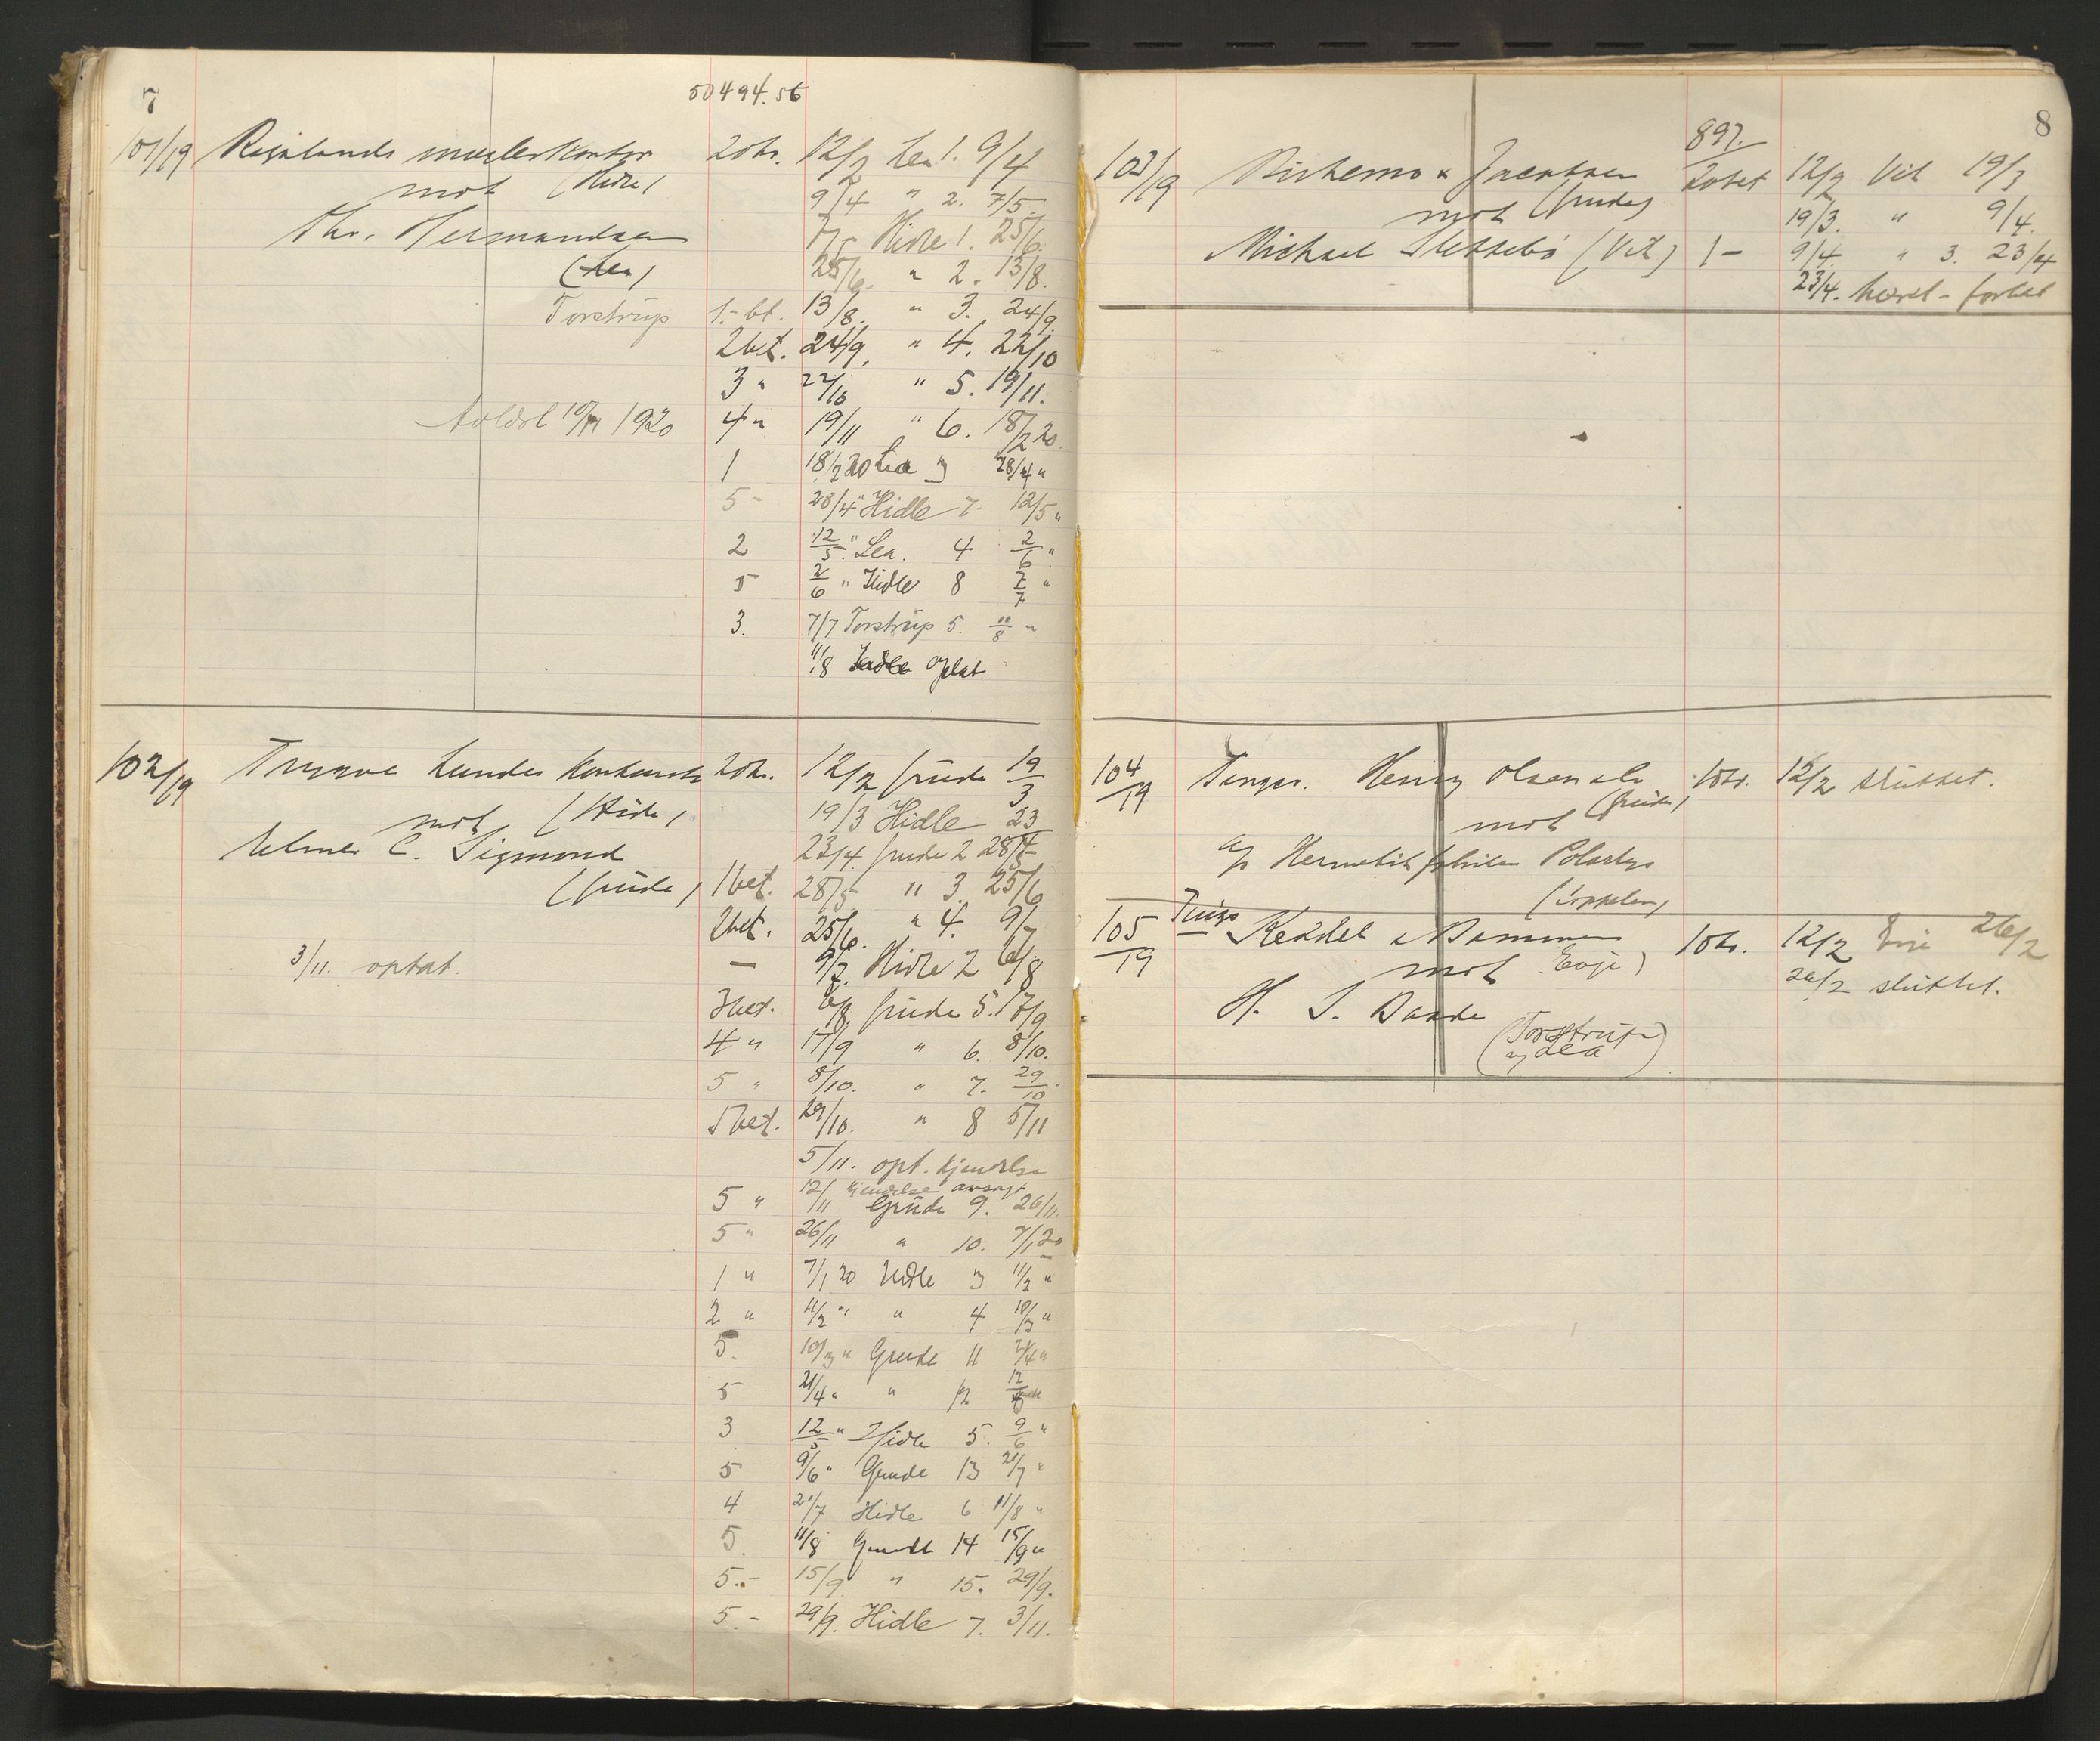 7
50494.56
101/19 Rogalands meglerkontor 20kr. 12/2 Lea 1. 9/4
mot (Hidle) 9/4 " 2. 7/5
Chr. Hermandsen 7/5 Hidle 1. 25/6.
(Lea) 25/6. " 2. 13/8.
Torstrup 1.- bt. 13/8. " 3. 24/9.
2 bet. 24/9. " 4. 22/10
3 " 22/10 " 5. 19/11.
1920 4 " 19/11 " 6. 18/2 20.
1 18/2 20 Lea 3 28/4 "
5 - 28/4 " Hidle 7 12/5 "
2 12/5. " Lea. 4 2/6 "
5 2/6 " Hidle 8 7/7 "
3. 7/7 Torstrup 5. 11/8 "
11/8 Hidle optat.
102/19 Trygve Lundes konkurs 20kr. 12/2 Grude 19/3
mot (Hidle) 19/3 Hidle 23/4
C. Sigmond 23/4. Grude 2 28/5
(Grude) 1 bet. 28/5 " 3. 25/6
2 bet. 25/6. " 4. 9/7
3/11. optat. — 9/7. Hidle 2 6/8
3 bet. 6/8. Grude 5. 17/9
4 " 17/9 " 6. 8/10.
5 " 8/10. " 7. 29/10.
5 bet. 29/10. " 8 5/11
5/11. opt. kjendelse
12/11 kjendelse avsagt
5 " Grude 9. 26/11.
5 " 26/11 " 10. 7/1 20
1 " 7/1 20 Hidle 3 11/2 "
2 " 11/2 " " 4 10/3 "
5. 10/3 " Grude 11 21/4 "
5 21/4 " " 12 12/5 "
3 12/5 " Hidle 5. 9/6 "
5 9/6 " Grude 13 21/7 "
4 21/7 Hidle 6 11/8 "
5. 11/8 Grude 14 15/9 "
5.- 15/9 " 15. 29/9.
5.- 29/9. Hidle 7. 3/11.
8
897.
103/19 & Jacobsen 20bet 12/2 Vit 19/3
mot (Grude) 19/3. " 9/4.
Michael Slettebö (Vit) 1 - 9/4. " 3. 23/4
23/4. hævet - forlikt
104/19 Tengs. Henry Olsen 10kr. 12/2 sluttet.
mot (Grude)
A/S Hermetikfabriken Polarbjs
105/19 Tengs Keddel & Bommen 10kr. 12/2 Eoje 26/2
mot Eoje) 26/2 sluttet.
H. S. Baade
(Torstrup
v/ Lea)